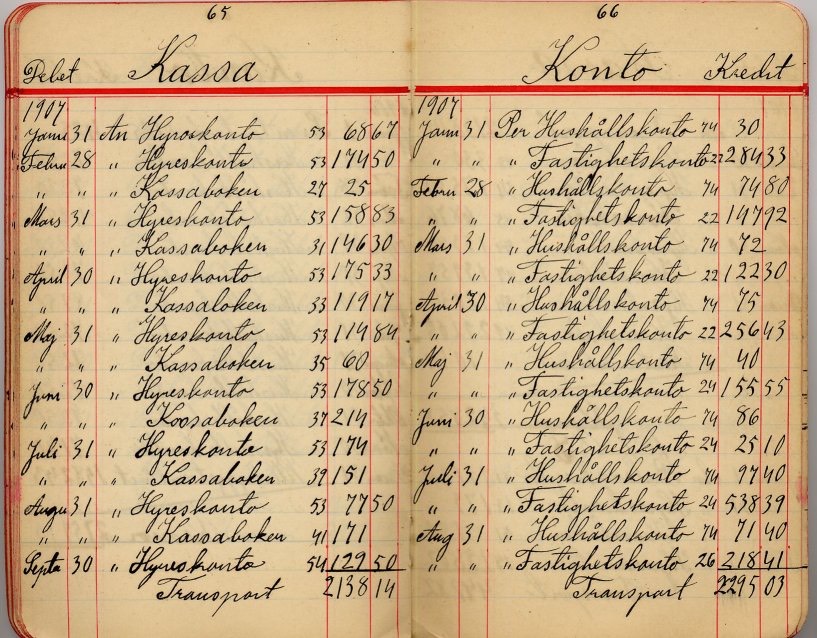 65
Debet Kassa
1907
Janu 31 An Hyreskonto 53 68 67
Febru 28 " Hyreskonto 53 174 50
" " " Kassaboken 27 25
Mars 31 " Hyreskonto 53 158 83
" " " Kassaboken 31 146 30
April 30 " Hyreskonto 53 175 33
" " " Kassaboken 33 119 17
Maj 31 " Hyreskonto 53 114 84
" " " Kassaboken 35 60
Juni 30 " Hyreskonto 53 178 50
" " " Kassaboken 37 214
Juli 31 " Hyreskonto 53 174
" " " Kassaboken 39 151
Augu 31 " Hyreskonto 53 77 50
" " " Kassaboken 41 171
Septe 30 " Hyreskonto 54 129 50
Transport 2138 14
66
Konto Kredit
1907
Janu 31 Per Hushållskonto 74 30
" " " Fastighetskonto 22 284 33
Febru 28 " Hushållskonto 74 74 80
" " " Fastighetskonto 22 147 92
Mars 31 " Hushållskonto 74 72
" " " Fastighetskonto 22 122 30
April 30 " Hushållskonto 74 75
" " " Fastighetskonto 22 256 43
Maj 31 " Hushållskonto 74 40
" " " Fastighetskonto 24 155 55
Juni 30 " Hushållskonto 74 86
" " " Fastighetskonto 24 25 10
Juli 31 " Hushållskonto 74 97 40
" " " Fastighetskonto 24 538 39
Aug 31 " Hushållskonto 74 71 40
" " " Fastighetskonto 26 218 41
Transport 2295 03